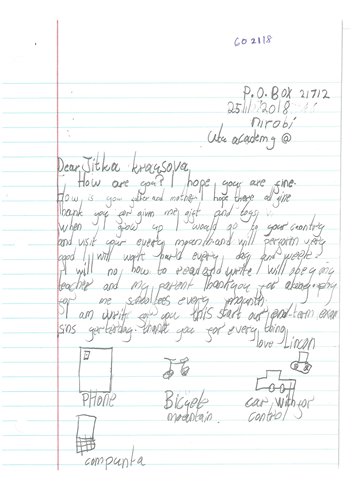 CO2118
P.O.Box 21712
25/11/2018
nirobi
academy @
Dear Jitka kraysova
How are you? I hope you are fine.
How is you father and mother I hope there all fine
thank you for given me gift and
When I grow up I would go to your country
and visit your every mounth and will perform very
good I will work hard every day and week
I will no how to read and write I will obey my
teacher and my parent thank you for
for me school fees every mounth
I am write for you this start our end-term exam
sins yesterday. thank you for every thing
love Lincon
PHone
Bicycle
mountain
car with for
control
compunta